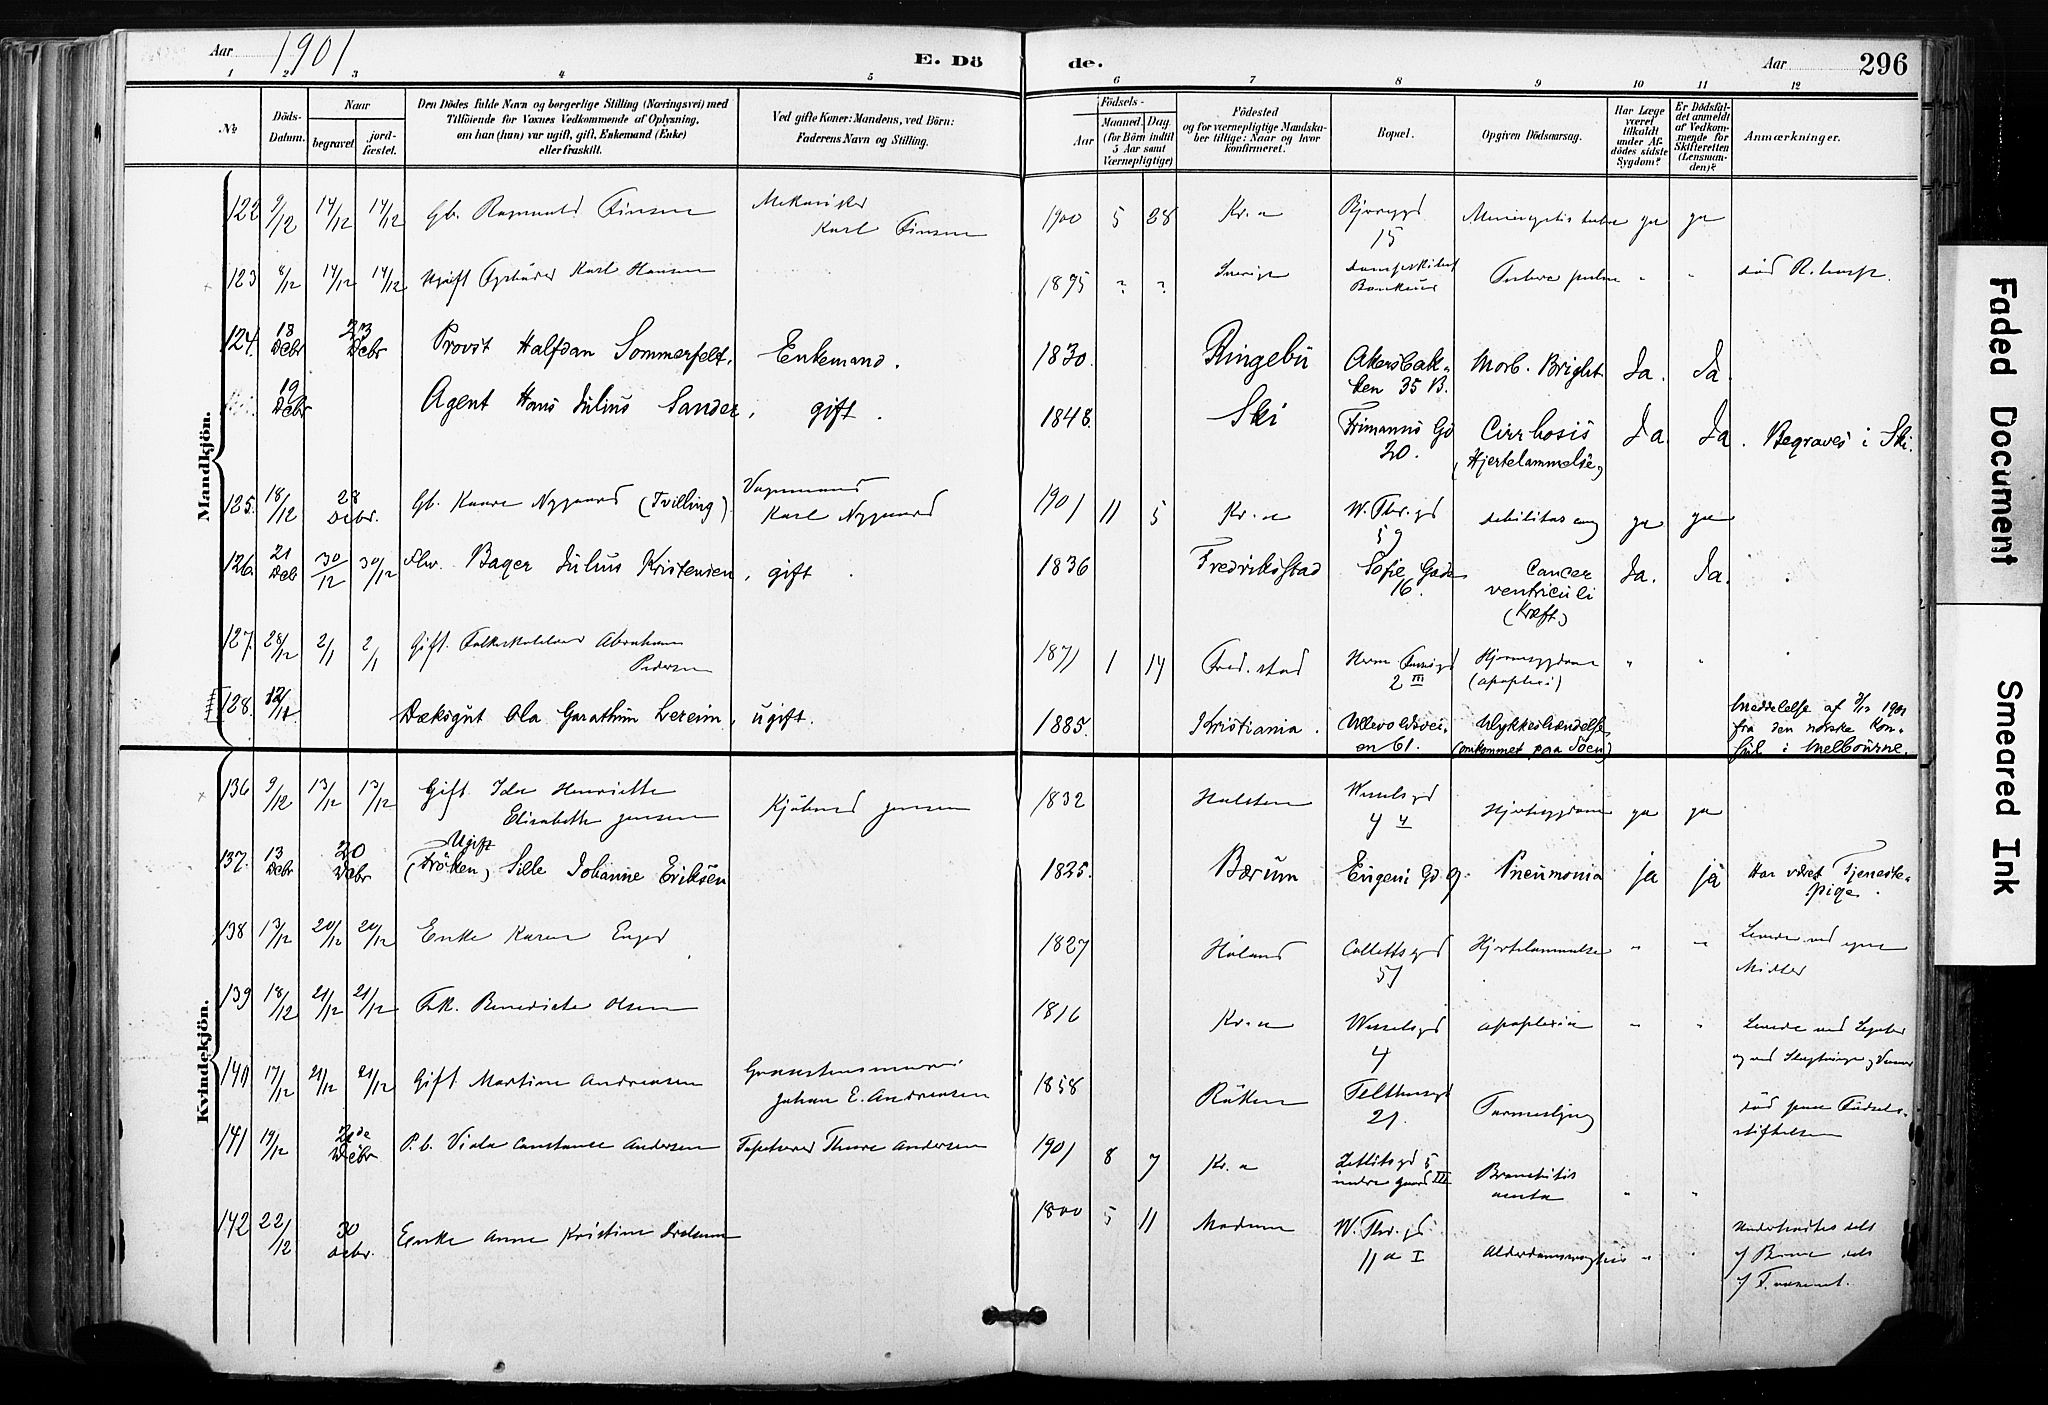 Aar 1901 E. Dö de. Aar 296
1 2 3 4 5 6 7 8 9 10 11 12
No
Döds-Datum.
Naar
begravet
jord-fæstet.
Den Dödes fulde Navn og borgerlige Stilling (Næringsvei) med
Tilföiende for Voxnes Vedkommende af Oplysning,
om han (hun) var ugift, gift, Enkemand (Enke)
eller fraskilt.
Ved gifte Koner: Mandens, ved Börn:
Faderens Navn og Stilling.
Födsels-
Aar
Maaned. Dag.
(for Börn indtil
5 Aar samt
Værnepligtige)
Födested
og for værnepligtige Mandska-
ber tillige: Naar og hvor
konfirmeret.
Bopæl.
Opgiven Dödsaarsag.
Har Læge
været
tilkaldt
under Af-
dödes sidste
Sygdom?
Er Dödsfal-
det anmeldt
af Vedkom-
mende for
Skifteretten
(Lensman-
den)?
Anmærkninger.
Mandkjön.
122 9/12 14/12 14/12 Gb. Ragnvald Finsen Mekaniker Karl Finsen 1900 5 28 Kr.a 15 ja ja
123 8/12 14/12 14/12 Ugift Fyrböder Karl Hansen 1895 ? ? Sverige " " död R. hosp.
124. 18 Debr 23 Debr Provst Halfdan Sommerfelt. Enkemand. 1830. Ringebu Akersbak-ken 35 B. Morb. Bright. Ja. Ja.
19 Debr Agent Hans Julius Sander, gift. 1848. Ski Frimanns Gd 20. Cirrhosis (Hjertelammelse) Ja. Ja. Begraves i Ski.
125. 18/12 28 Debr. Gb. Kaare Nygaard (Tvilling) Vognmand Karl Nygaard 1901 11 5 Kr.a W. Thr.gd 59 debilitas cong ja ja
126. 21 Deb 30/12 30/12 Bager Julius Kristensen, gift. 1836 Fredriksstad Sofie Gade 16. Cancer ventriculi (Kræft) Ja. Ja.
127. 28/12 2/1 2/1 Gift. Abraham Pedersen 1871 1 14 Fred.stad 2 III Hjernesygdom (apoplexi) " "
128. Dæksgut Ola Garathun Lereim, ugift. 1885. Kristiania. Ullevoldsvei-en 61. Ulykkeshændelse (omkommet paa Söen) Meddelelse af 1901 fra den norske Kon-sul i Melbourne.
Kvindekjön.
136 9/12 13/12 13/12 Gift Ida Henriette Elisabeth Jensen Kjöbmd Jensen 1832 Holsten Wesselsgd 4 4 Hjertesygdom ja ja
137. 13 Debr 20 Debr Ugift (Fröken) Sille Johanne Eriksen 1825. Bærum Eugeni Gd. 9. Pneumonia ja ja Har været Tjeneste-pige.
138 13/12 20/12 20/12 Enke Karen Enger 1827 Höland Collettsgd 51 Hjertelammelse " " Levede ved egne Midler
139 18/12 21/12 21/12 Frk. Benedicte Olsen 1816 Kr.a Wesselsgd 4 apoplexia " " Levede ved Legater og ved Slægtninge, Venner
140 17/12 21/12 21/12 Gift Martine Andreasen Johan E. Andreasen 1858 Röken Telthusgd 21. Tarmeslyng död paa Födsels-stiftelsen
141 19/12 Debr P.b. Viola Constance Andersen Tapetserer Thure Andersen 1901 8 7 Kr.a Zetlitsgd 5 indre gaard III Bronchitis acuta " "
142 22/12 30 Debr. Enke Anne Kristine 1800 5 11 Modum W. Thr.gd. 11 a I Alderdomssvaghed " " Underholdtes dels af Börn dels af
Faded Document
Smeared Ink